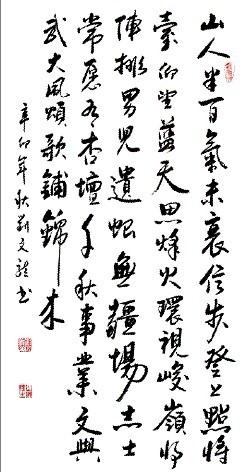 山人半百氣未衰信步登上點將
臺仰望藍天思烽火環視峻嶺將
陣排男兒遺恨無疆場志士
常愿有杏壇千秋事業文與
武大風頌歌鋪錦來
辛卯年秋文龍书